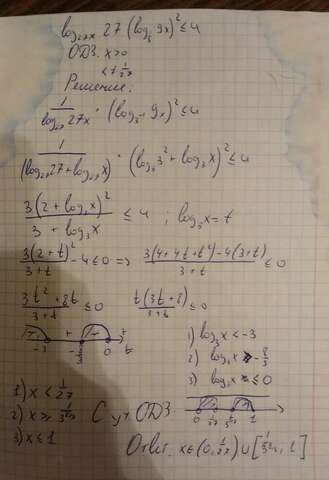 log₂₇ₓ 27 (log₃ 9x)² ≤ 4
ОДЗ: x>0
x≠1/27
Решение:
1/(log₂₇ 27x) · (log₃ 9x)² ≤ 4
1/(log₂₇ 27 + log₂₇ x) · (log₃ 3² + log₃ x)² ≤ 4
3(2 + log₃ x)²/(3 + log₃ x) ≤ 4 ; log₃ x = t
3(2+t)²/(3+t) - 4 ≤ 0 => (3(4+4t+t²) - 4(3+t))/(3+t) ≤ 0
(3t² + 8t)/(3+t) ≤ 0 t(3t+8)/(3+t) ≤ 0
- + - + t
-3 -8/3 0
1) log₃ x < -3
2) log₃ x ≥ -8/3
3) log₃ x ≤ 0
1) x < 1/27
2) x ≥
3) x ≤ 1
С уч ОДЗ:
0 1/27 1
Ответ: x∈(0, 1/27) ∪ [ , 1]